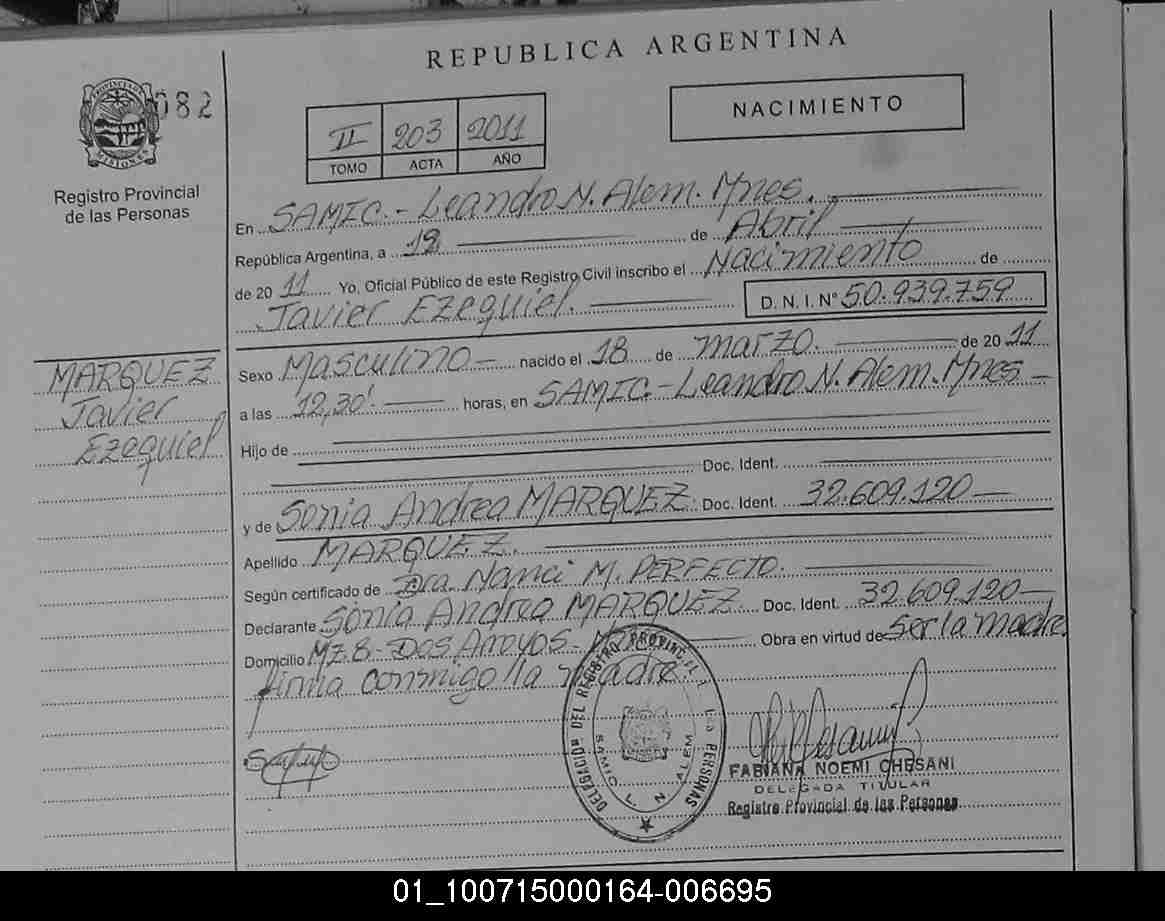 REPUBLICA ARGENTINA
082
PROVINCIA DE MISIONES
Registro Provincial
de las Personas
II 203 2011
TOMO ACTA AÑO
NACIMIENTO
En SAMIC.- Leandro N. Alem. Mnes.
República Argentina, a 19 de Abril
de 20 11 Yo, Oficial Público de este Registro Civil inscribo el Nacimiento de
Javier Ezequiel. D. N. I. N° 50.939.759
MARQUEZ
Javier
Ezequiel
Sexo Masculino - nacido el 18 de marzo. de 20 11
a las 12,30'. horas, en SAMIC.- Leandro N. Alem. Mnes -
Hijo de
Doc. Ident.
y de Sonia Andrea MARQUEZ. Doc. Ident. 32.609.120
Apellido MARQUEZ.
Según certificado de Dra. Nanci M. PERFECTO.
Declarante Sonia Andrea MARQUEZ Doc. Ident. 32.609.120
Domicilio MZ.8- Dos Arroyos- Obra en virtud de ser la madre.
firma conmigo la madre.
DELEGACION DEL REGISTRO PROVINCIAL DE LAS PERSONAS
SAMIC L. N. ALEM
FABIANA NOEMI CHESANI
DELEGADA TITULAR
Registro Provincial de las Personas
01_100715000164-006695